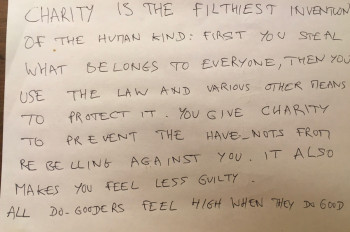 CHARITY IS THE FILTHIEST INVENTION
OF THE HUMAN KIND: FIRST YOU STEAL
WHAT BELONGS TO EVERYONE, THEN YOU
USE THE LAW AND VARIOUS OTHER MEANS
TO PROTECT IT. YOU GIVE CHARITY
TO PREVENT THE HAVE_NOTS FROM
REBELLING AGAINST YOU. IT ALSO
MAKES YOU FEEL LESS GUILTY.
ALL DO-GOODERS FEEL HIGH WHEN THEY DO GOOD